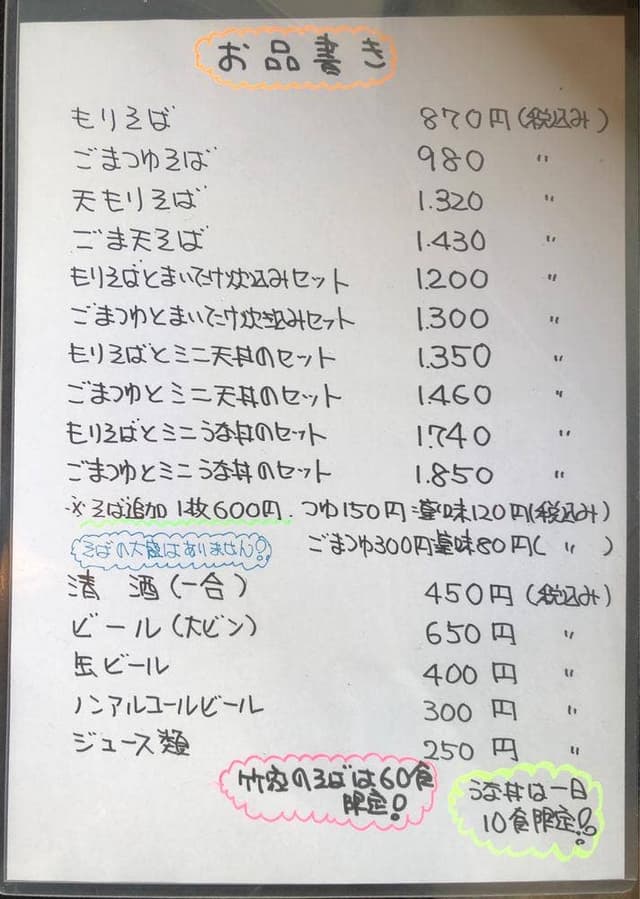 お品書き
もりそば 870円(税込み)
ごまつゆそば 980 〃
天もりそば 1.320 〃
ごま天そば 1.430 〃
もりそばとまいたけ炊込みセット 1.200 〃
ごまつゆとまいたけ炊き込みセット 1.300 〃
もりそばとミニ天丼のセット 1.350 〃
ごまつゆとミニ天丼のセット 1.460 〃
もりそばとミニうな丼のセット 1.740 〃
ごまつゆとミニうな丼のセット 1.850 〃
※そば追加1枚600円.つゆ150円 薬味120円(税込み)
そばの大盛はありません!! ごまつゆ300円 薬味80円( 〃 )
清 酒(一合) 450円(税込み)
ビール(大ビン) 650円 〃
缶ビール 400円 〃
ノンアルコールビール 300円 〃
ジュース類 250円 〃
のそばは60食
限定!
うな丼は一日
10食限定!!